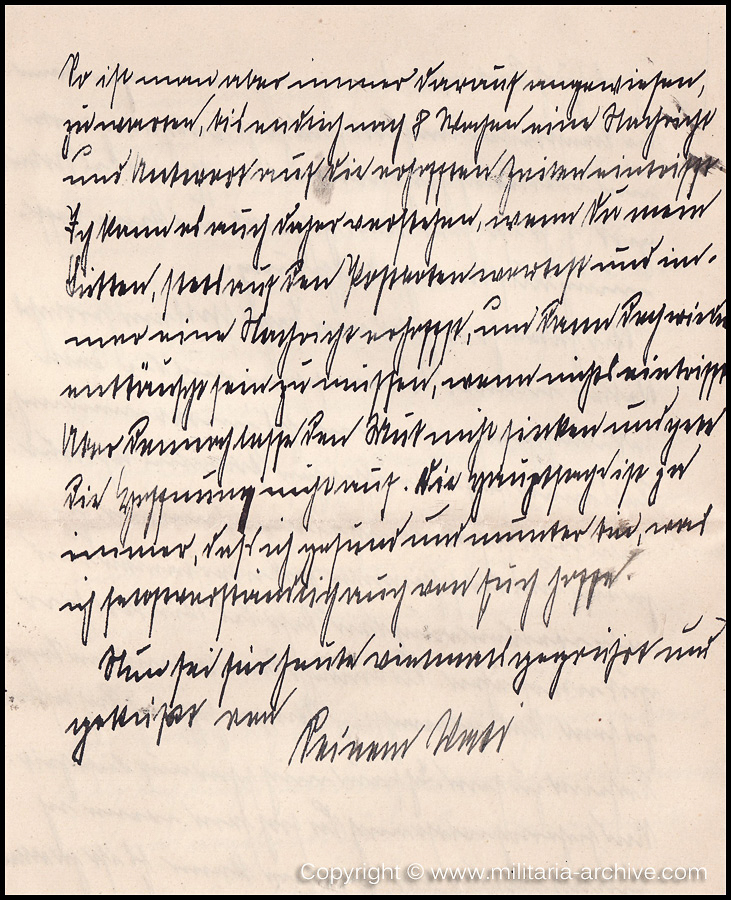 So ist man aber immer darauf angewiesen,
zu warten, bis endlich nach 8 Wochen eine Nachricht
und Antwort auf die erhofften Zeilen eintrifft.
Ich kann es auch daher verstehen, wenn Du mein
stets auf den Postboten wartest und im-
mer eine Nachricht erhoffst, und dann doch wieder
enttäuscht sein zu müssen, wenn nichts eintrifft
Aber dennoch lasse den Mut nicht sinken und gebe
die Hoffnung nicht auf. Die Hauptsache ist ja
immer, daß ich gesund und munter bin, was
ich selbstverständlich auch von Euch hoffe.
Nun sei für heute vielmals gegrüßt und
geküßt von
Deinem Vati
Copyright © www.militaria-archive.com